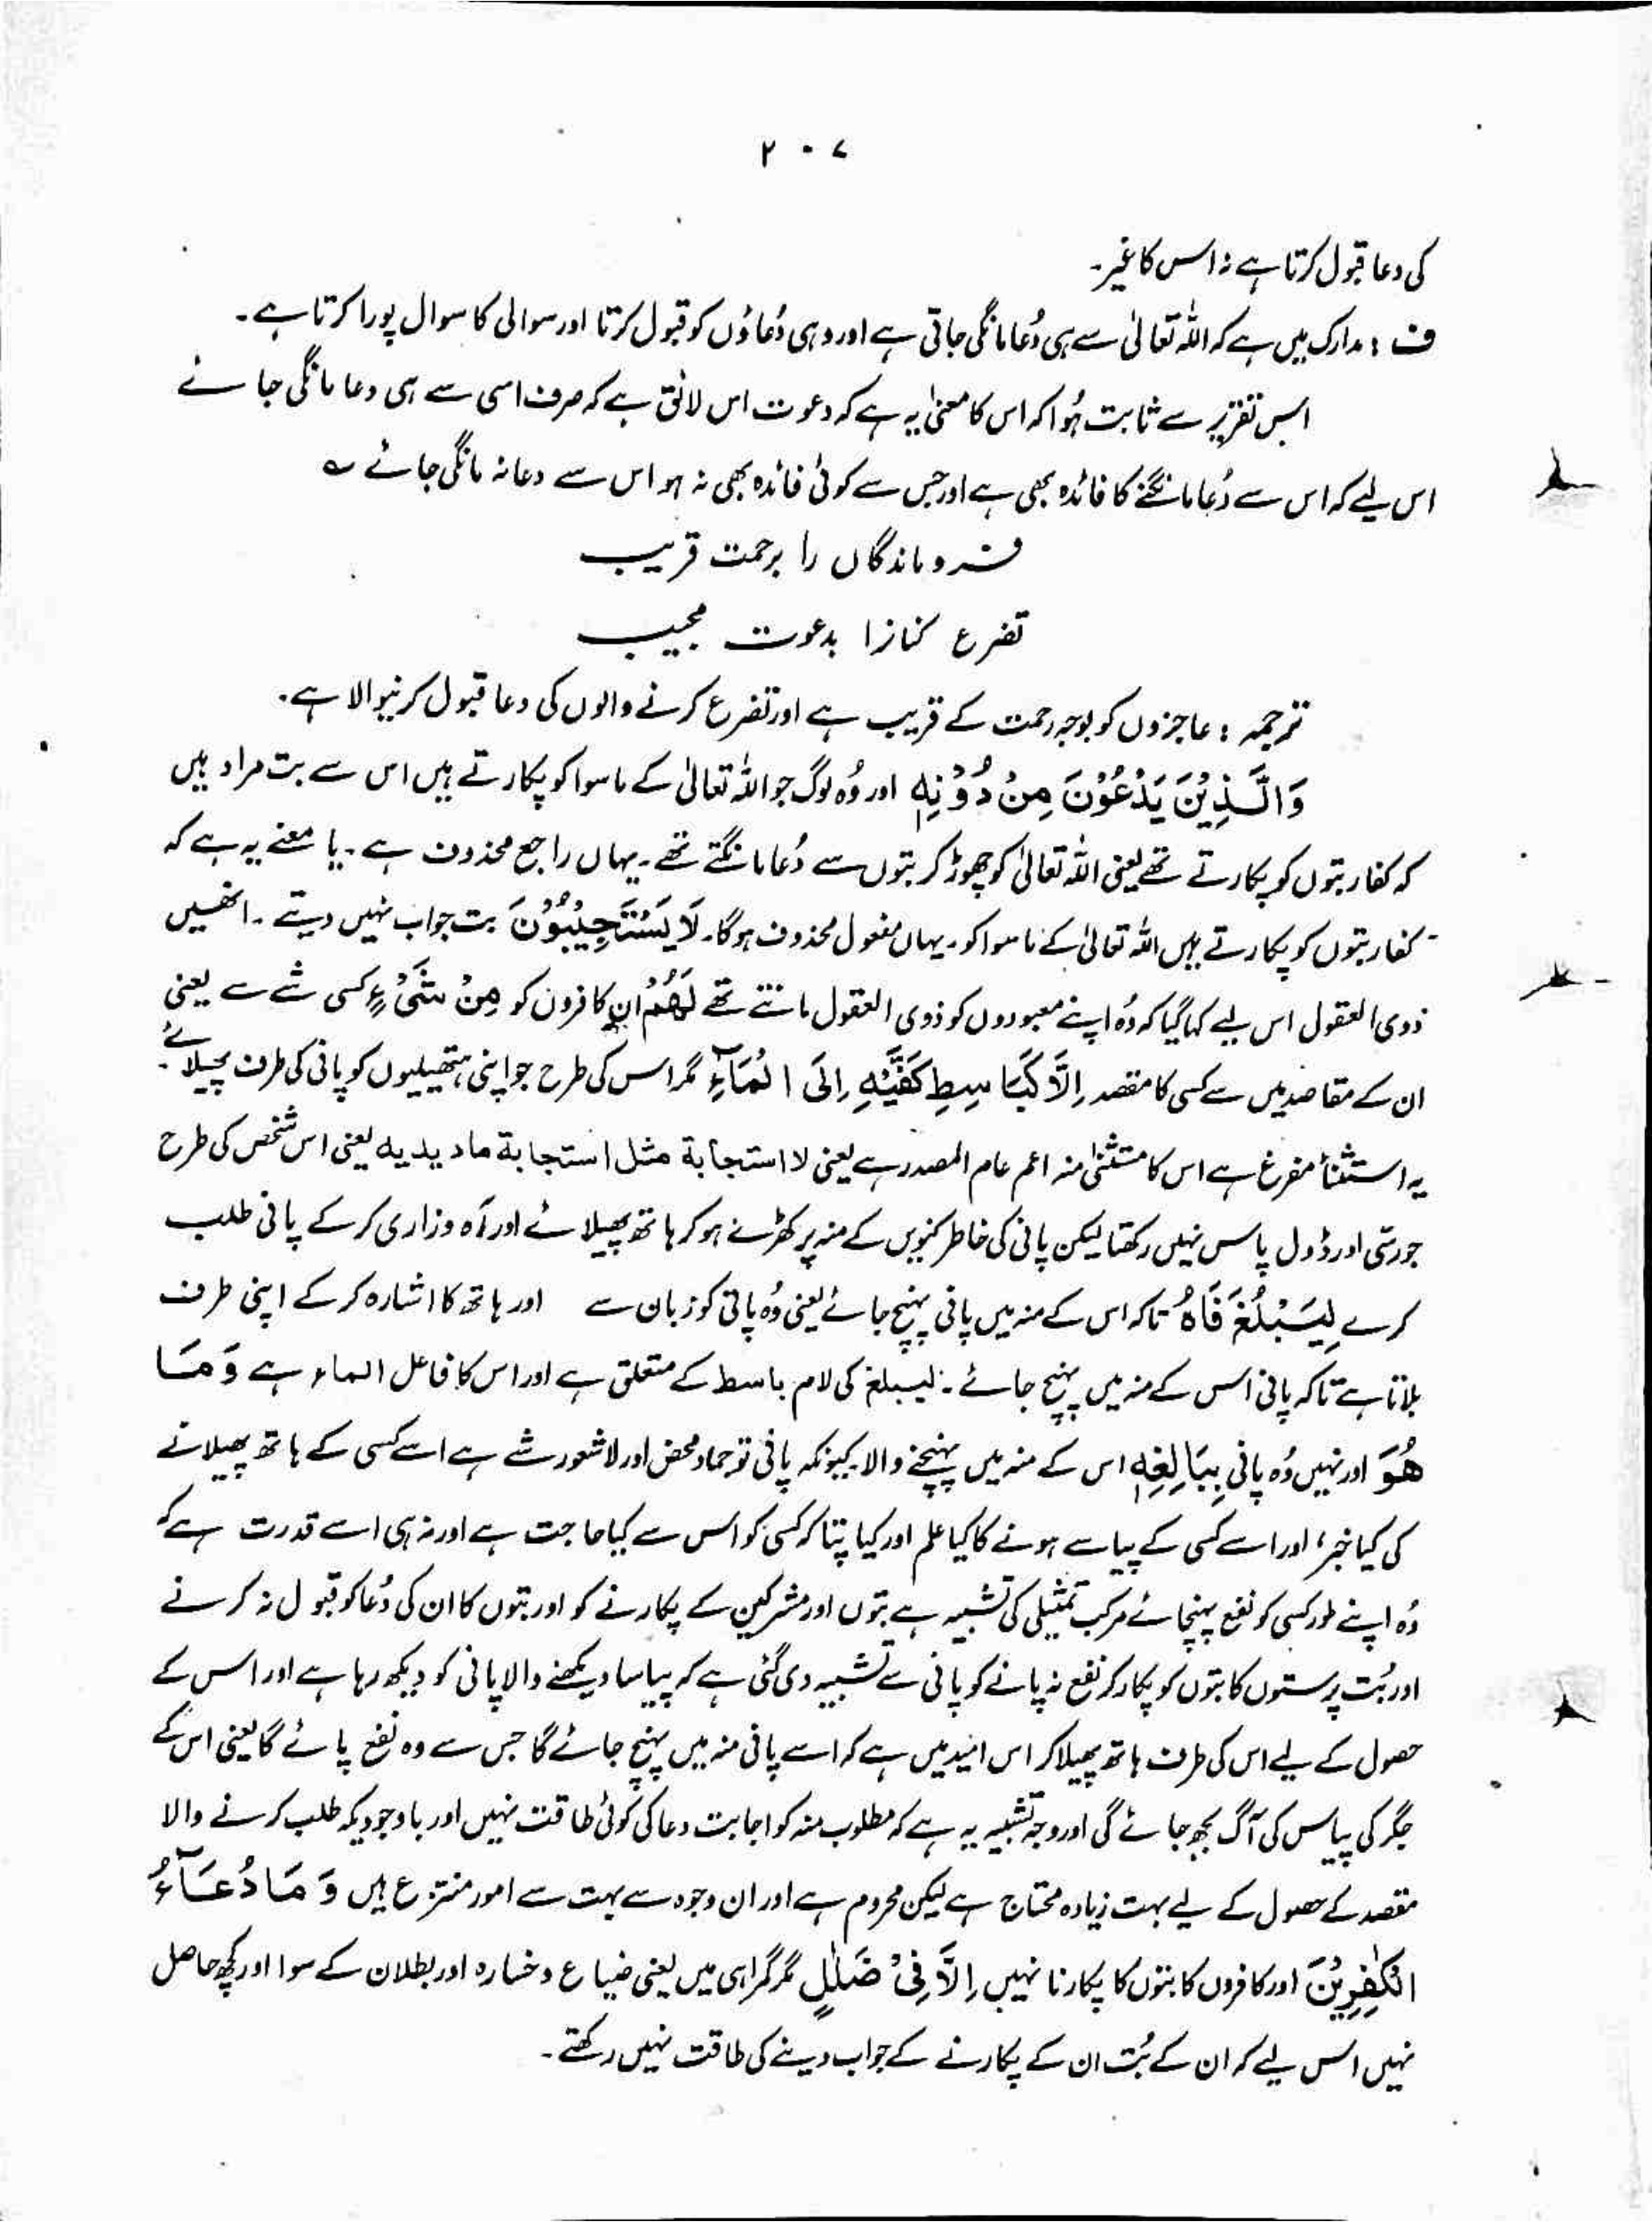 ۲۰۷
کی دعا قبول کرتا ہے نہ اس کا غیر۔
ف : مدارک میں ہے کہ اللہ تعالیٰ سے ہی دُعا مانگی جاتی ہے اور وہی دُعاؤں کو قبول کرتا اور سوالی کا سوال پورا کرتا ہے۔
اس تقریر سے ثابت ہُوا کہ اس کا معنیٰ یہ ہے کہ دعوت اس لائق ہے کہ صرف اسی سے ہی دعا مانگی جائے
اس لیے کہ اس سے دُعا مانگنے کا فائدہ بھی ہے اور جس سے کوئی فائدہ بھی نہ ہو اس سے دعا نہ مانگی جائے ؎
فروماندگاں را برحمت قریب
تضرع کنانرا بدعوت مجیب
ترجمہ : عاجزوں کو بوجہ رحمت کے قریب ہے اور تضرع کرنے والوں کی دعا قبول کرنیوالا ہے۔
وَالَّذِيْنَ يَدْعُوْنَ مِنْ دُوْنِهٖ اور وُہ لوگ جو اللہ تعالیٰ کے ماسوا کو پکارتے ہیں اس سے بت مراد ہیں
کہ کفار بتوں کو پکارتے تھے یعنی اللہ تعالیٰ کو چھوڑ کر بتوں سے دُعا مانگتے تھے۔ یہاں راجع محذوف ہے۔ یا معنے یہ ہے کہ
کفار بتوں کو پکارتے ہیں اللہ تعالیٰ کے ماسوا کو۔ یہاں مفعول محذوف ہوگا۔ لَا يَسْتَجِيْبُوْنَ بت جواب نہیں دیتے۔ انھیں
ذوی العقول اس لیے کہا گیا کہ وُہ اپنے معبودوں کو ذوی العقول مانتے تھے لَهُمْ ان کافروں کو مِنْ شَیْءٍ کسی شے سے یعنی
ان کے مقاصد میں سے کسی کا مقصد اِلَّا كَبَاسِطِ كَفَّيْهِ اِلَى الْمَآءِ مگر اس کی طرح جو اپنی ہتھیلیوں کو پانی کی طرف پھیلائے۔
یہ استثنأ مفرغ ہے اس کا مستثنیٰ منہ اعم عام المصدر ہے یعنی لا استجابة مثل استجابة ماد یدیه یعنی اس شخص کی طرح
جو رسّی اور ڈول پاس نہیں رکھتا لیکن پانی کی خاطر کنویں کے منہ پر کھڑے ہو کر ہاتھ پھیلائے اور آہ و زاری کر کے پانی طلب
کرے لِيَبْلُغَ فَاهُ تاکہ اس کے منہ میں پانی پہنچ جائے یعنی وُہ پانی کو زبان سے اور ہاتھ کا اشارہ کر کے اپنی طرف
بلاتا ہے تاکہ پانی اس کے منہ میں پہنچ جائے۔ لیبلغ کی لام باسط کے متعلق ہے اور اس کا فاعل الماء ہے وَمَا
هُوَ اور نہیں وُہ پانی بِبَالِغِهٖ اس کے منہ میں پہنچنے والا کیونکہ پانی تو جماد محض اور لاشعور شے ہے اسے کسی کے ہاتھ پھیلانے
کی کیا خبر، اور اسے کسی کے پیاسے ہونے کا کیا علم اور کیا پتا کہ کسی کو اس سے کیا حاجت ہے اور نہ ہی اسے قدرت ہے کہ
وُہ اپنے طور کسی کو نفع پہنچائے مرکب تمثیلی کی تشبیہ ہے بتوں اور مشرکین کے پکارنے کو اور بتوں کا ان کی دُعا کو قبول نہ کرنے
اور بُت پرستوں کا بتوں کو پکار کر نفع نہ پانے کو پانی سے تشبیہ دی گئی ہے کہ پیاسا دیکھنے والا پانی کو دیکھ رہا ہے اور اس کے
حصول کے لیے اس کی طرف ہاتھ پھیلا کر اس امید میں ہے کہ اسے پانی منہ میں پہنچ جائے گا جس سے وہ نفع پائے گا یعنی اس کے
جگر کی پیاس کی آگ بجھ جائے گی اور وجہ تشبیہ یہ ہے کہ مطلوب منہ کو اجابت دعا کی کوئی طاقت نہیں اور باوجودیکہ طلب کرنے والا
مقصد کے حصول کے لیے بہت زیادہ محتاج ہے لیکن محروم ہے اور ان وجوہ سے بہت سے امور منتزع ہیں وَمَا دُعَآءُ
الْكٰفِرِيْنَ اور کافروں کا بتوں کا پکارنا نہیں اِلَّا فِىْ ضَلٰلٍ مگر گمراہی میں یعنی ضیاع و خسارہ اور بطلان کے سوا اور کچھ حاصل
نہیں اس لیے کہ ان کے بُت ان کے پکارنے کے جواب دینے کی طاقت نہیں رکھتے۔